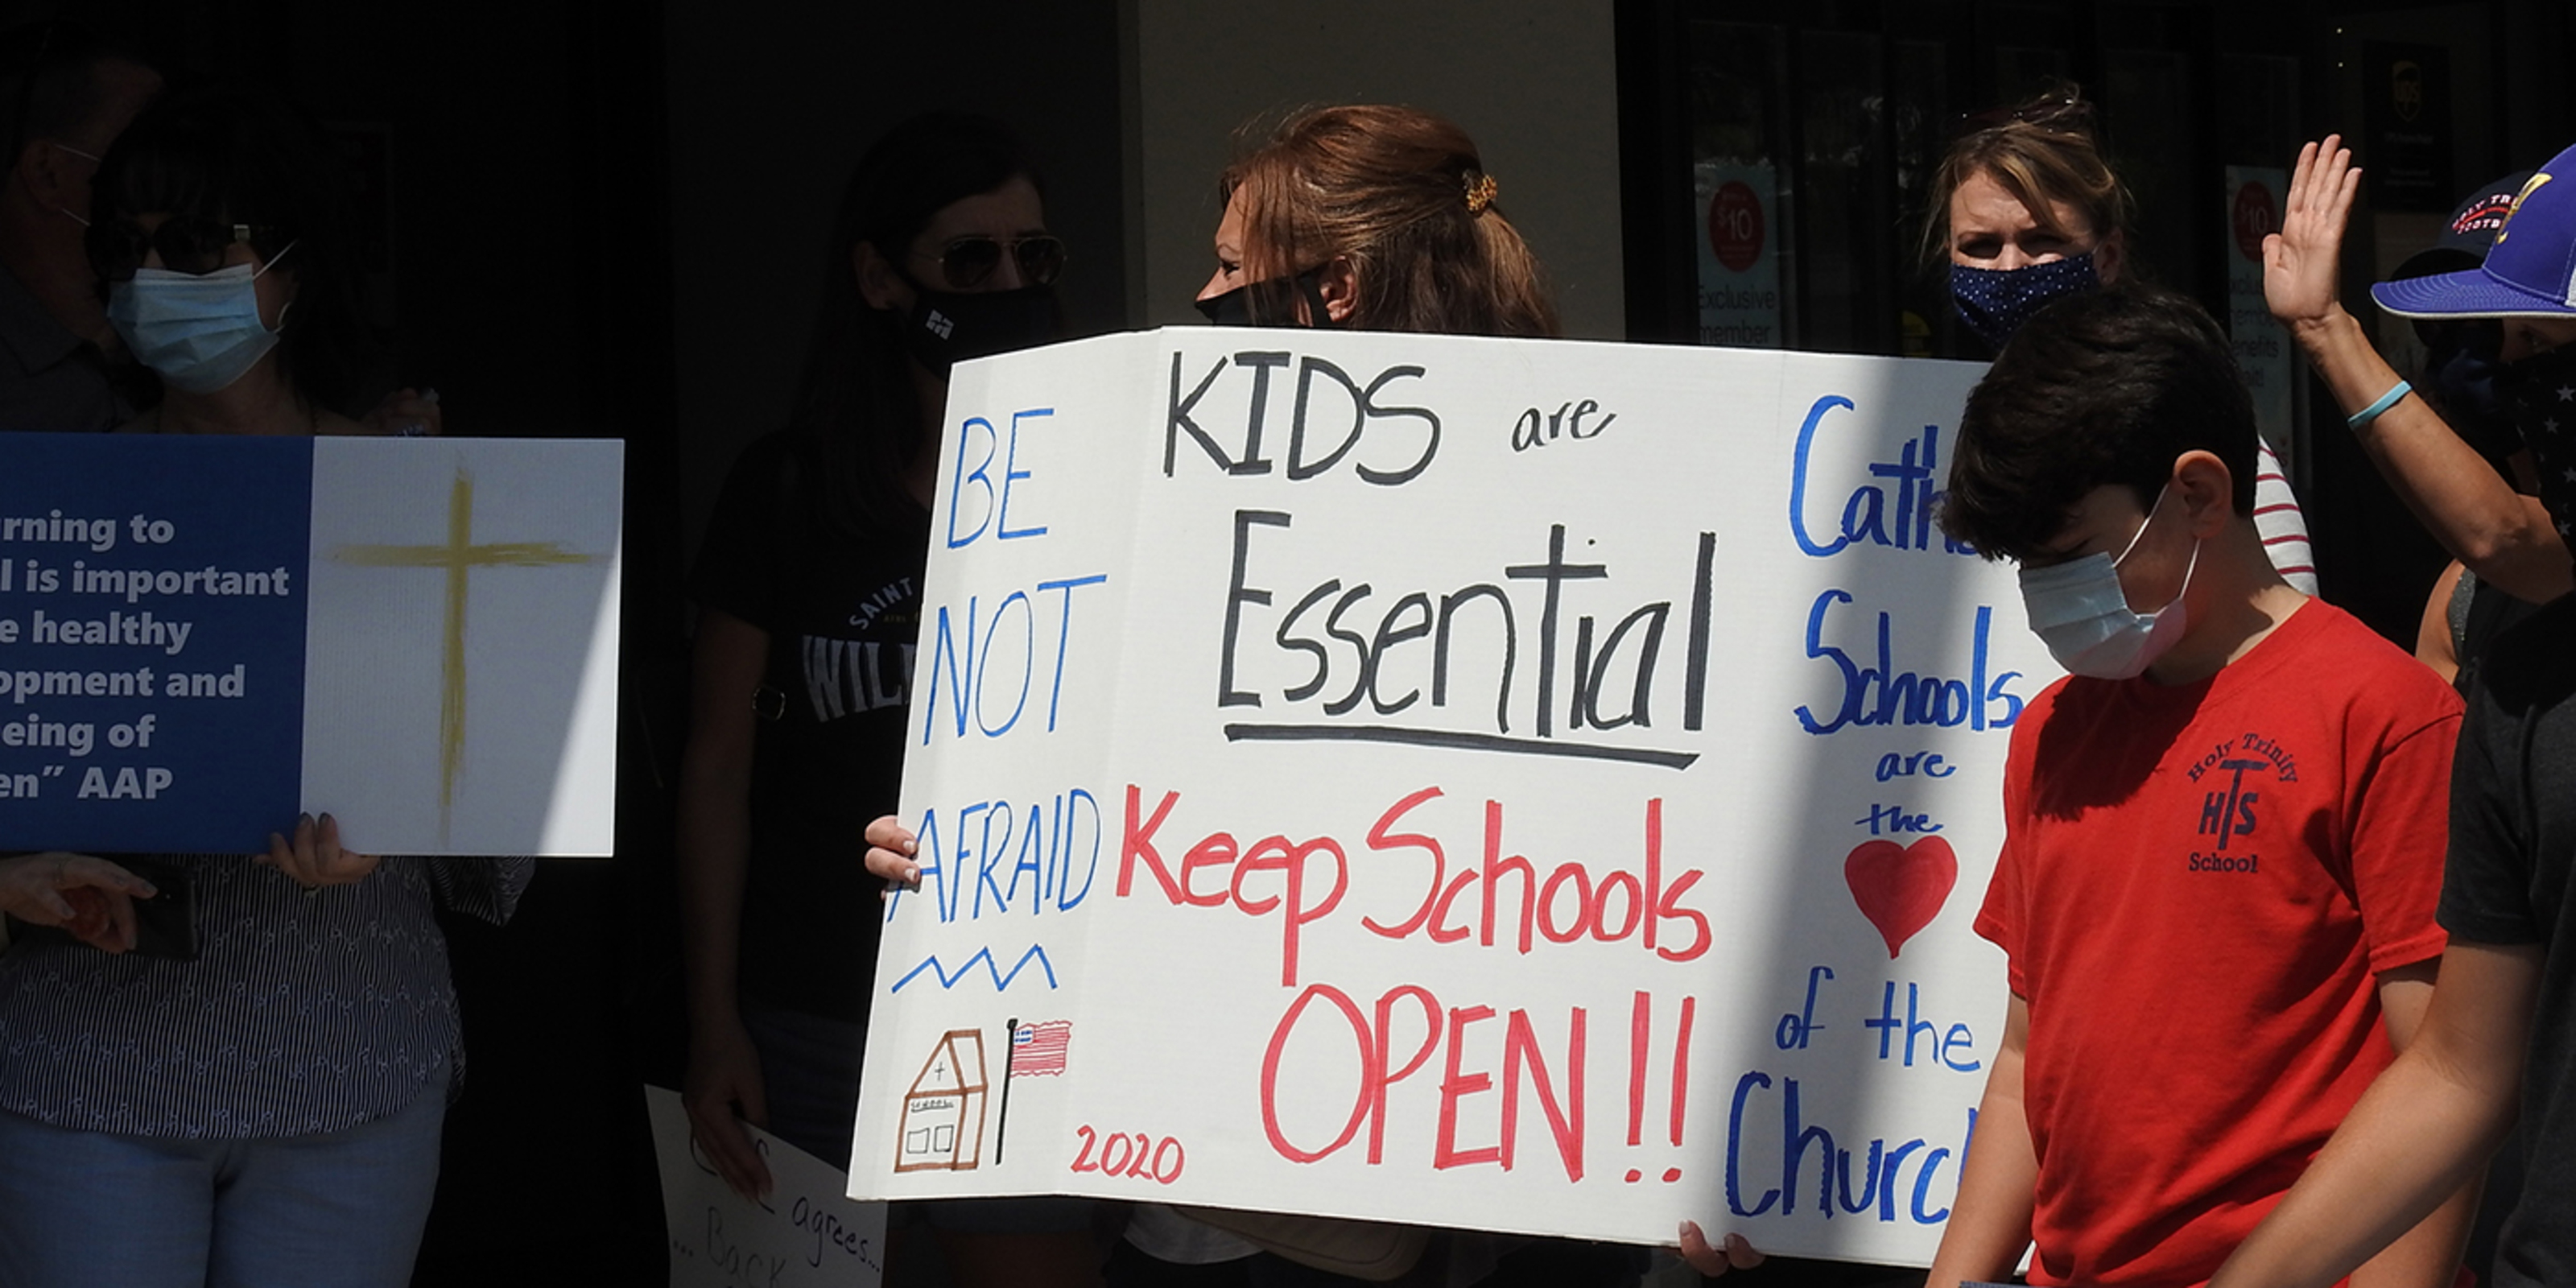 rning to
l is important
e healthy
opment and
eing of
en" AAP
BE
NOT
AFRAID
SCHOOL
2020
KIDS are
Essential
Keep Schools
OPEN!!
Cath
Schools
are
the
of the
Church
agrees...
...Back
SAINT
WIL
Holy Trinity
HTS
School
$10
Exclusive
member
$10
ups